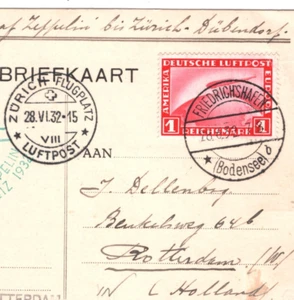 af Zeppelin" bis Zürich - Dübendorf.
BRIEFKAART
ZÜRICH FLUGPLATZ
28.VI.32-15
VIII
LUFTPOST
DEUTSCHE LUFTPOST
AMERIKA
EUROPA
1 REICHSMARK
FRIEDRICHSHAFEN
(Bodensee)
b
AAN
J. Dellenbag
Beukelsweg 64b
Rotterdam (W)
IN Holland